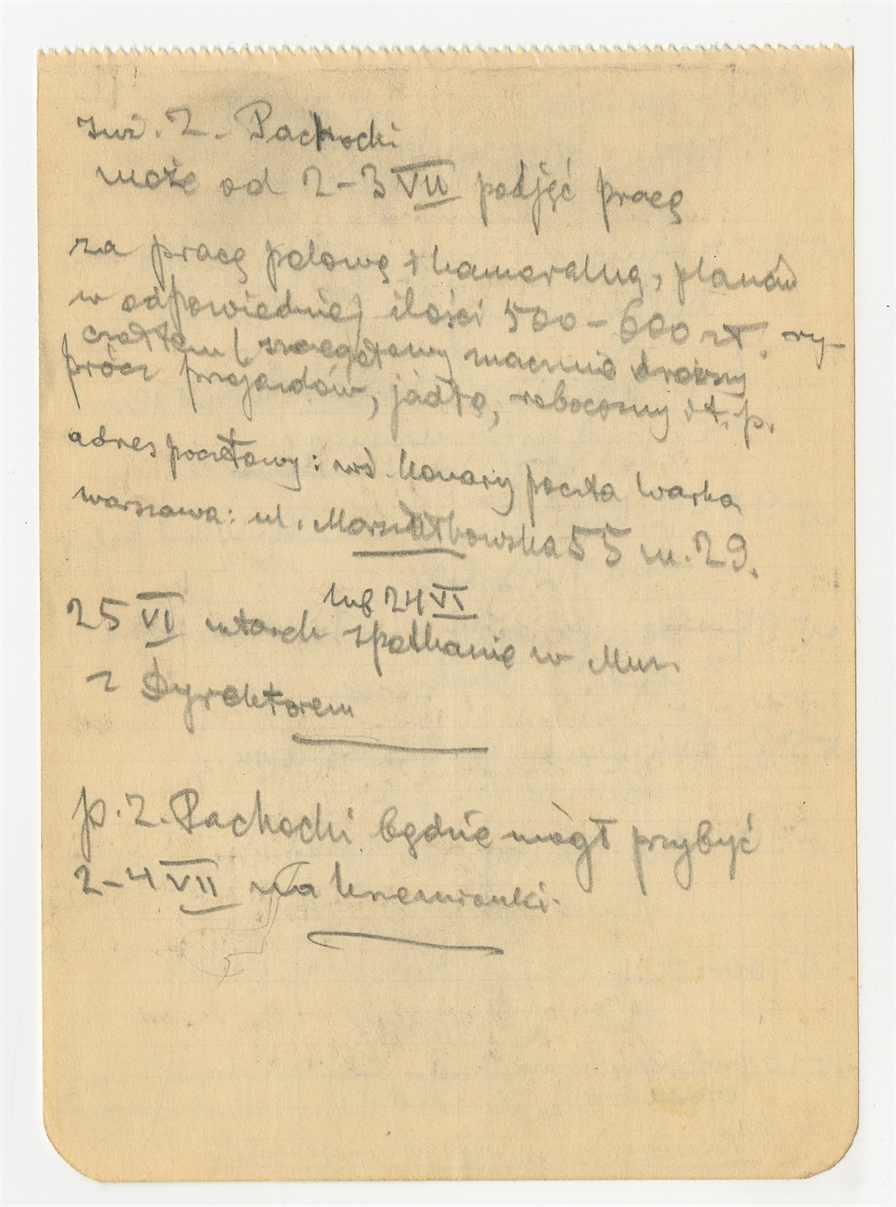 inż. Z. Pachocki
może od 2-3 VII podjąć pracę
za pracę polową i kameralną, planów
w odpowiedniej ilości 500-600 zł. ry-
czałtem ( szczegółowy znacznie droższy
prócz przejazdów, jadła, robocizny i t. p.
adres pocztowy: inż. Konary poczta Warka
Warszawa: ul. Marszałkowska 55 m. 29.
lub 24 VI
25 VI wtorek spotkanie w Muz.
z Dyrektorem
p. Z. Pachocki będzie mógł przybyć
2-4 VII na Krzemionki.